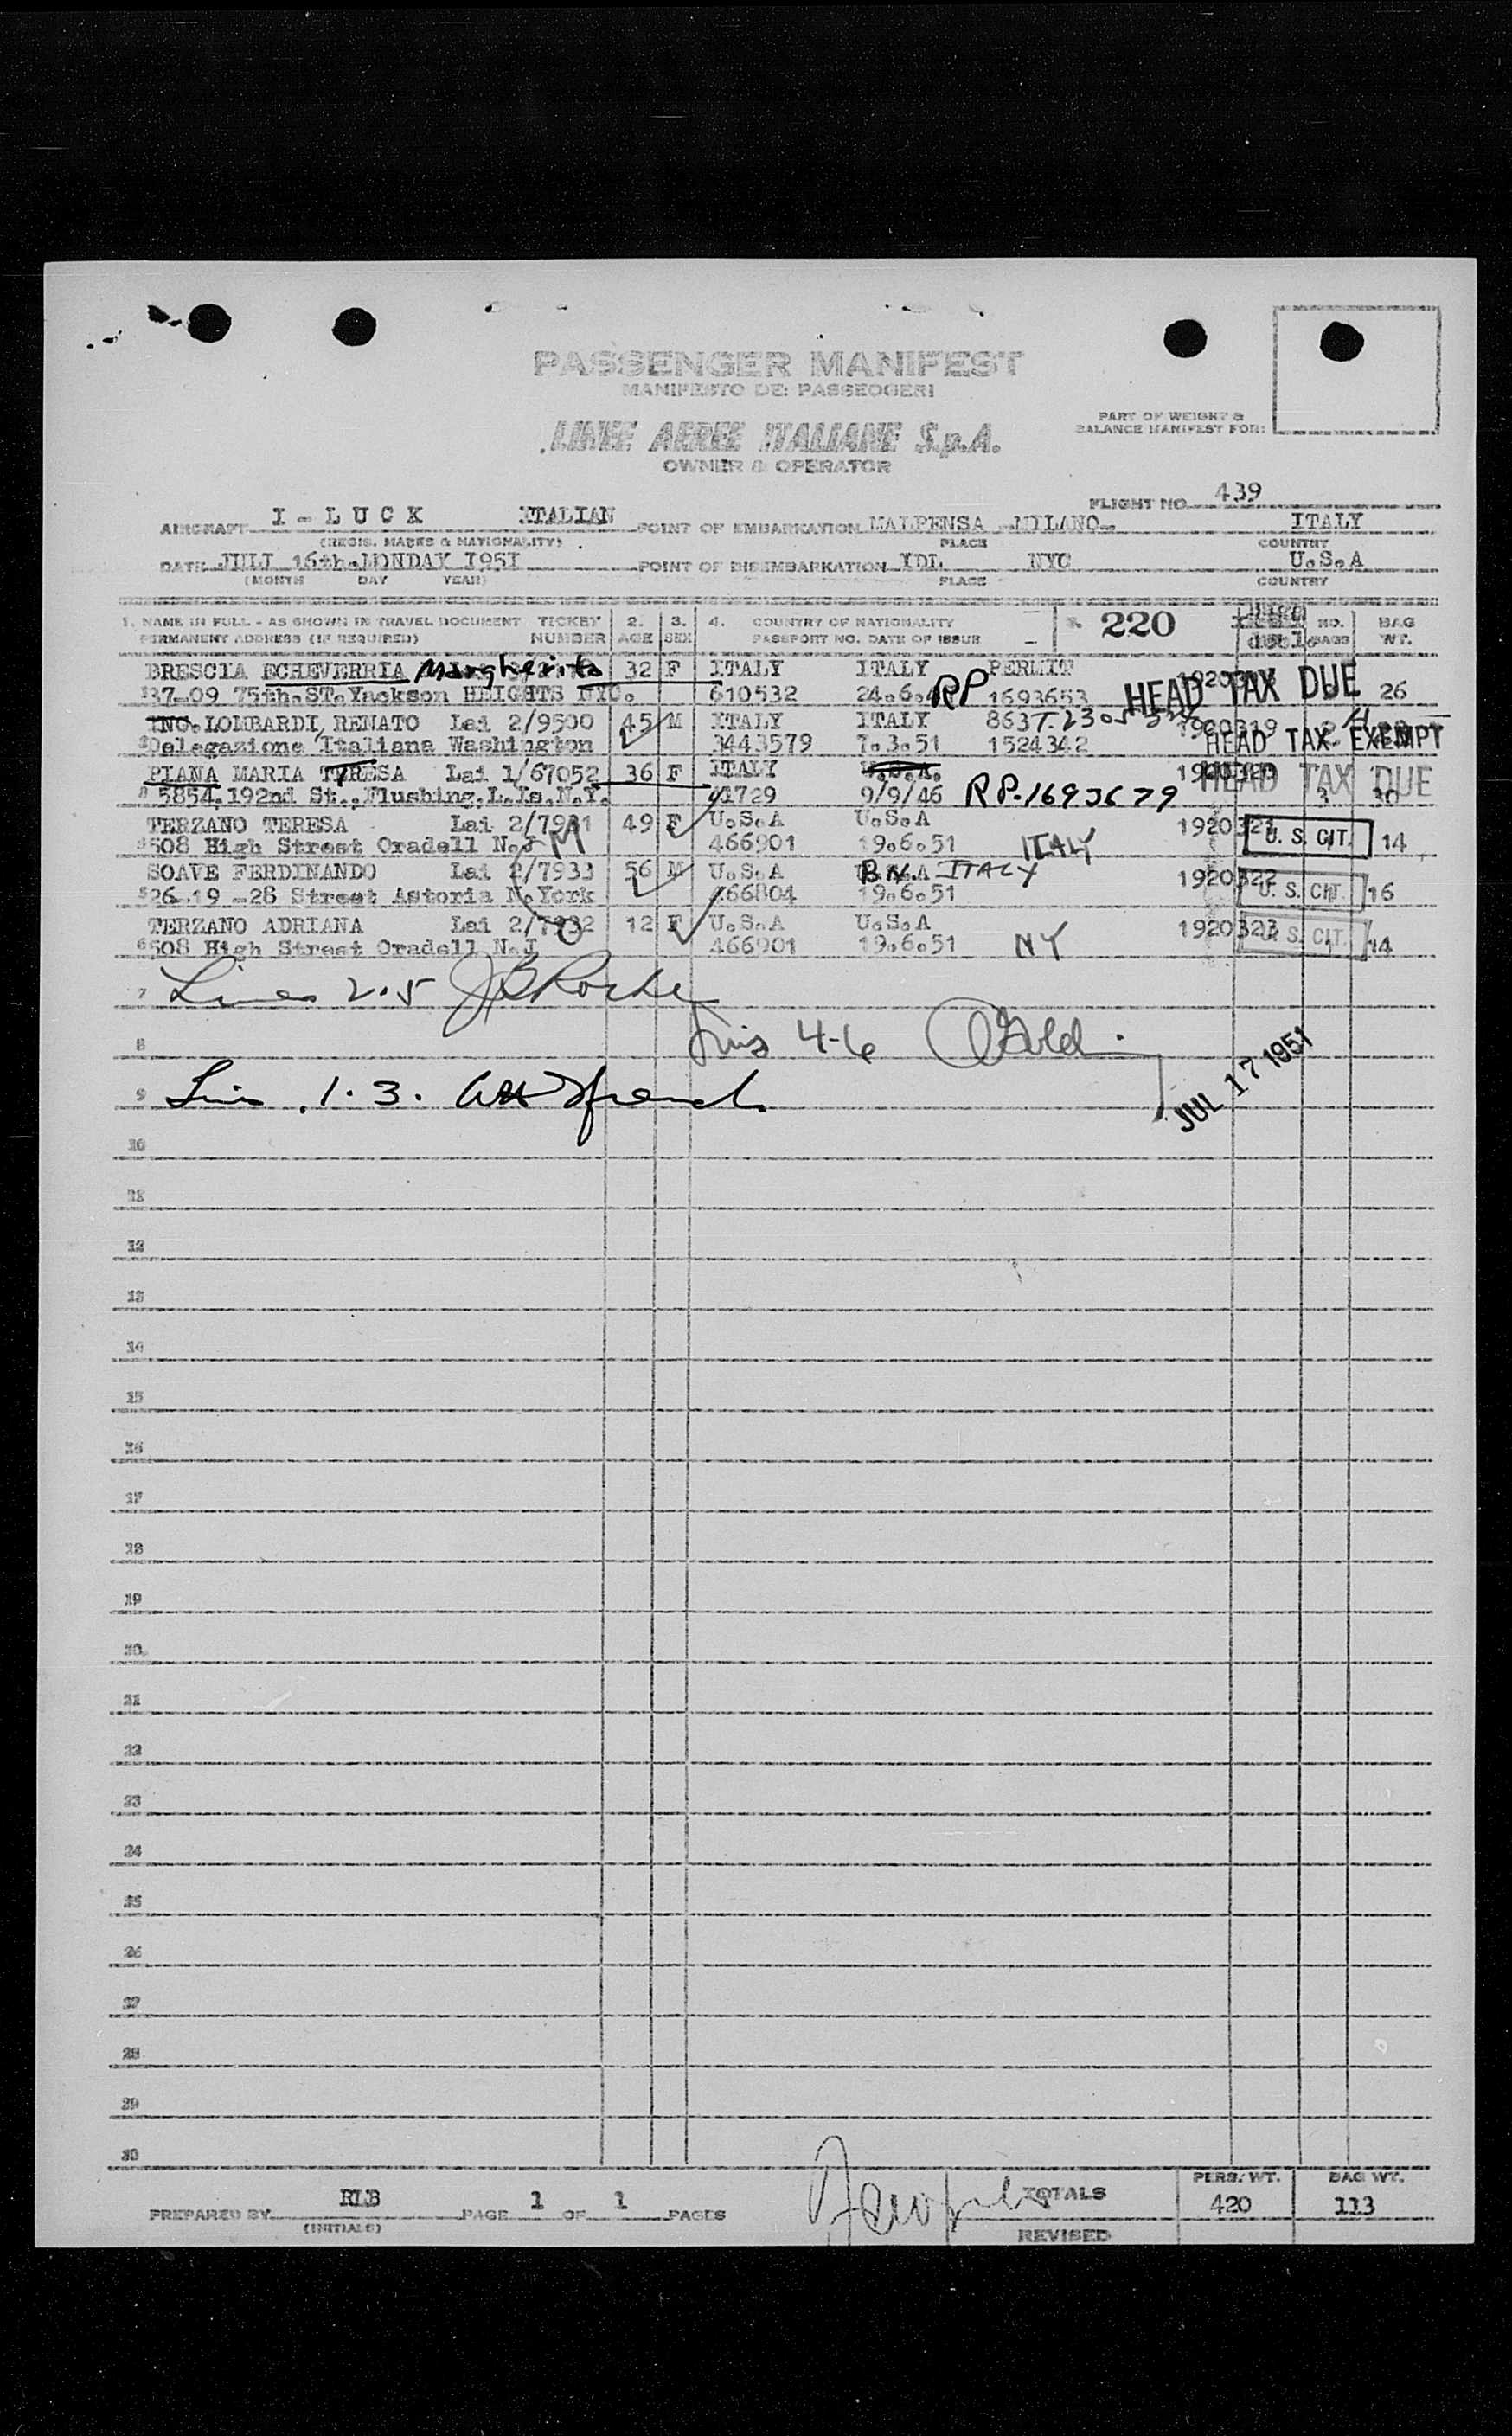 PASSENGER MANIFEST
MANIFESTO DEI PASSEGGERI
LINEE AEREE ITALIANE S.p.A.
OWNER & OPERATOR
PART OF WEIGHT &
BALANCE MANIFEST FOR:
FLIGHT NO. 439
AIRCRAFT I - L U C K ITALIAN POINT OF EMBARKATION MALPENSA - MILANO - ITALY
(REGIS. MARKS & NATIONALITY) PLACE COUNTRY
DATE JULI 16th. MONDAY 1951 POINT OF DISEMBARKATION IDL NYC U.S.A
(MONTH DAY YEAR) PLACE COUNTRY
1. NAME IN FULL - AS SHOWN IN TRAVEL DOCUMENT TICKET 2. 3. 4. COUNTRY OF NATIONALITY 220 NO. BAG
PERMANENT ADDRESS (IF REQUIRED) NUMBER AGE SEX PASSPORT NO. DATE OF ISSUE BAGS WT.
BRESCIA ECHEVERRIA Margherita 32 F ITALY ITALY PERMIT
37-09 75th.ST.Yackson HEIGHTS NYC. 610532 24.6. RP 1693653 HEAD TAX DUE 26
ING. LOMBARDI, RENATO Lai 2/9500 45 M ITALY ITALY 1920319
Delegazione Italiana Washington 3443579 7.3.51 1524342 HEAD TAX EXEMPT
PIANA MARIA TERESA Lai 1/67052 36 F ITALY U.S.A. 1920320 HEAD TAX DUE
5854.192nd St., Flushing.L.Is.N.Y. 41729 9/9/46 RP-1693679 3 30
TERZANO TERESA Lai 2/7931 49 F U.S.A U.S.A 1920321 U. S. CIT.
508 High Street Oradell N.J M 466901 19.6.51 ITALY 14
SOAVE FERDINANDO Lai 2/7933 56 M U.S.A ITALY 1920322 U. S. CIT.
26-19 -28 Street Astoria N.York 466804 19.6.51 16
TERZANO ADRIANA Lai 2/7932 12 F U.S.A U.S.A 1920323 U. S. CIT.
508 High Street Oradell N.J 466901 19.6.51 NY 14
7 Lines 2.5
8 4-6
JUL 17 1951
9 1. 3.
10
11
12
13
14
15
16
17
18
19
20
21
22
23
24
25
26
27
28
29
30
PREPARED BY RLB PAGE 1 OF 1 PAGES TOTALS PERS. WT. 420 BAG WT. 113
(INITIALS) REVISED